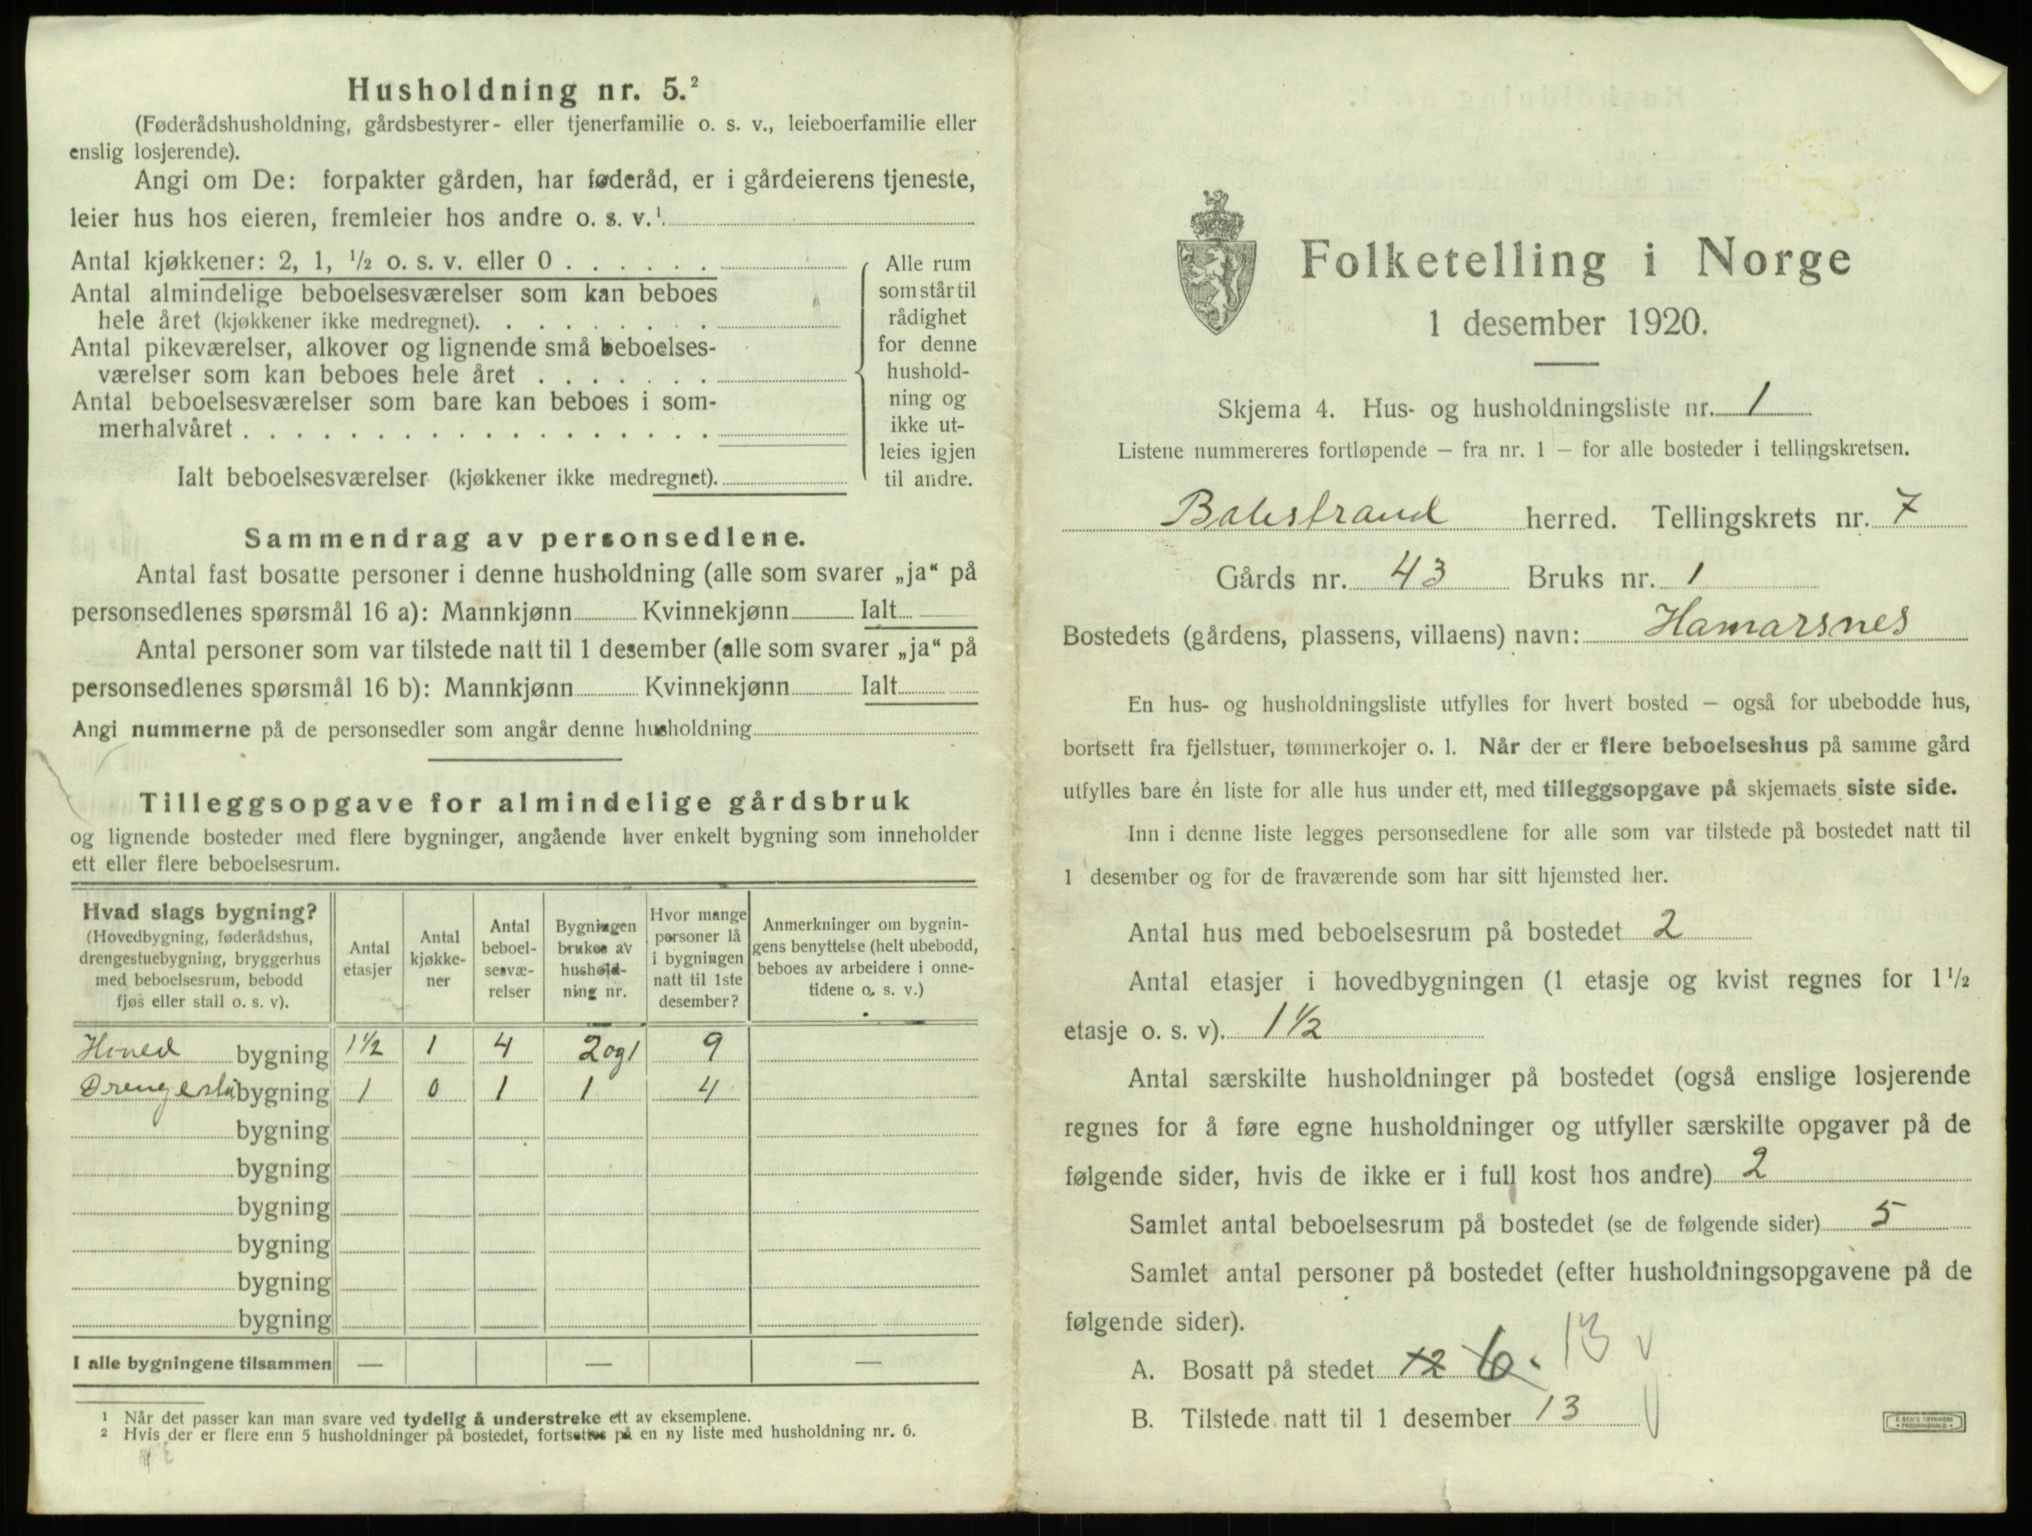 Husholdning nr. 5.²
(Føderådshusholdning, gårdsbestyrer- eller tjenerfamilie o. s. v., leieboerfamilie eller
enslig losjerende).
Angi om De: forpakter gården, har føderåd, er i gårdeierens tjeneste,
leier hus hos eieren, fremleier hos andre o. s. v.¹
Antal kjøkkener: 2, 1, ½ o. s. v. eller 0
Antal almindelige beboelsesværelser som kan beboes
hele året (kjøkkener ikke medregnet).
Antal pikeværelser, alkover og lignende små beboelses-
værelser som kan beboes hele året
Antal beboelsesværelser som bare kan beboes i som-
merhalvåret
Ialt beboelsesværelser (kjøkkener ikke medregnet).
Alle rum
som står til
rådighet
for denne
hushold-
ning og
ikke ut-
leies igjen
til andre.
Sammendrag av personsedlene.
Antal fast bosatte personer i denne husholdning (alle som svarer „ja“ på
personsedlenes spørsmål 16 a): Mannkjønn Kvinnekjønn Ialt
Antal personer som var tilstede natt til 1 desember (alle som svarer „ja“ på
personsedlenes spørsmål 16 b): Mannkjønn Kvinnekjønn Ialt
Angi nummerne på de personsedler som angår denne husholdning
Tilleggsopgave for almindelige gårdsbruk
og lignende bosteder med flere bygninger, angående hver enkelt bygning som inneholder
ett eller flere beboelsesrum.
Hvad slags bygning?
(Hovedbygning, føderådshus,
drengestuebygning, bryggerhus
med beboelsesrum, bebodd
fjøs eller stall o. s. v).
Antal
etasjer
Antal
kjøkke-
ner
Antal
beboel-
sesvæ-
relser
Bygningen
brukes av
hushold-
ning nr.
Hvor mange
personer lå
i bygningen
natt til 1ste
desember?
Anmerkninger om bygnin-
gens benyttelse (helt ubebodd,
beboes av arbeidere i onne-
tidene o. s. v.)
Hoved bygning 1½ 1 4 2 og 1 9
Drengestu bygning 1 0 1 1 4
bygning
bygning
bygning
bygning
bygning
bygning
I alle bygningene tilsammen — — —
¹ Når det passer kan man svare ved tydelig å understreke ett av eksemplene.
² Hvis der er flere enn 5 husholdninger på bostedet, fortsettes på en ny liste med husholdning nr. 6.
Folketelling i Norge
1 desember 1920.
Skjema 4. Hus- og husholdningsliste nr. 1
Listene nummereres fortløpende – fra nr. 1 – for alle bosteder i tellingskretsen.
Balestrand herred. Tellingskrets nr. 7
Gårds nr. 43 Bruks nr. 1
Bostedets (gårdens, plassens, villaens) navn: Hamarsnes
En hus- og husholdningsliste utfylles for hvert bosted – også for ubebodde hus,
bortsett fra fjellstuer, tømmerkojer o. l. Når der er flere beboelseshus på samme gård
utfylles bare én liste for alle hus under ett, med tilleggsopgave på skjemaets siste side.
Inn i denne liste legges personsedlene for alle som var tilstede på bostedet natt til
1 desember og for de fraværende som har sitt hjemsted her.
Antal hus med beboelsesrum på bostedet 2
Antal etasjer i hovedbygningen (1 etasje og kvist regnes for 1½
etasje o. s. v). 1½
Antal særskilte husholdninger på bostedet (også enslige losjerende
regnes for å føre egne husholdninger og utfyller særskilte opgaver på de
følgende sider, hvis de ikke er i full kost hos andre) 2
Samlet antal beboelsesrum på bostedet (se de følgende sider) 5
Samlet antal personer på bostedet (efter husholdningsopgavene på de
følgende sider).
A. Bosatt på stedet 12 6. 13 v
B. Tilstede natt til 1 desember 13